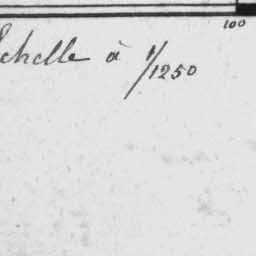 100
Echelle à 1/1250